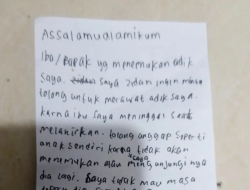 Assalamualamikum
Ibu/Bapak yg menemukan adik
saya. saya zidan ingin minta
tolong untuk merawat adik saya.
karna ibu saya meninggal saat
melahirkan. tolong anggap seperti
anak sendiri karna tidak akan
menemukan atau mengunjungi nya
saya
dia lagi. saya tidak mau masa